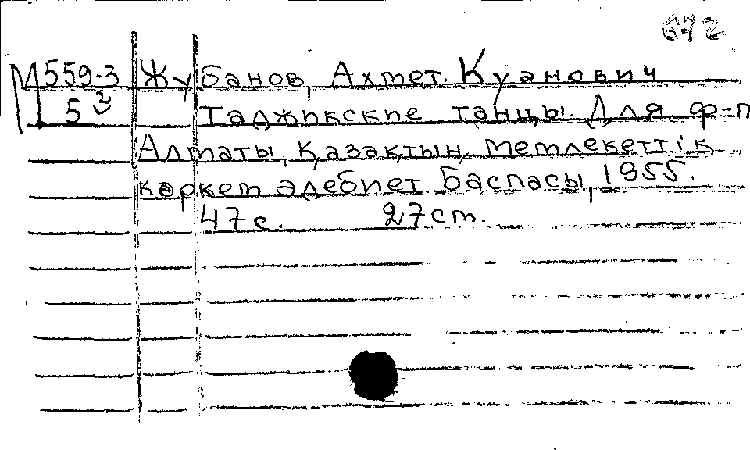 М559-3 Жубанов, Ахмет Куанович
5 Таджикские танцы. Для ф-п
Алматы, Қазақтың мемлекеттік
көркем әдебиет баспасы, 1955.
47с. 27см.